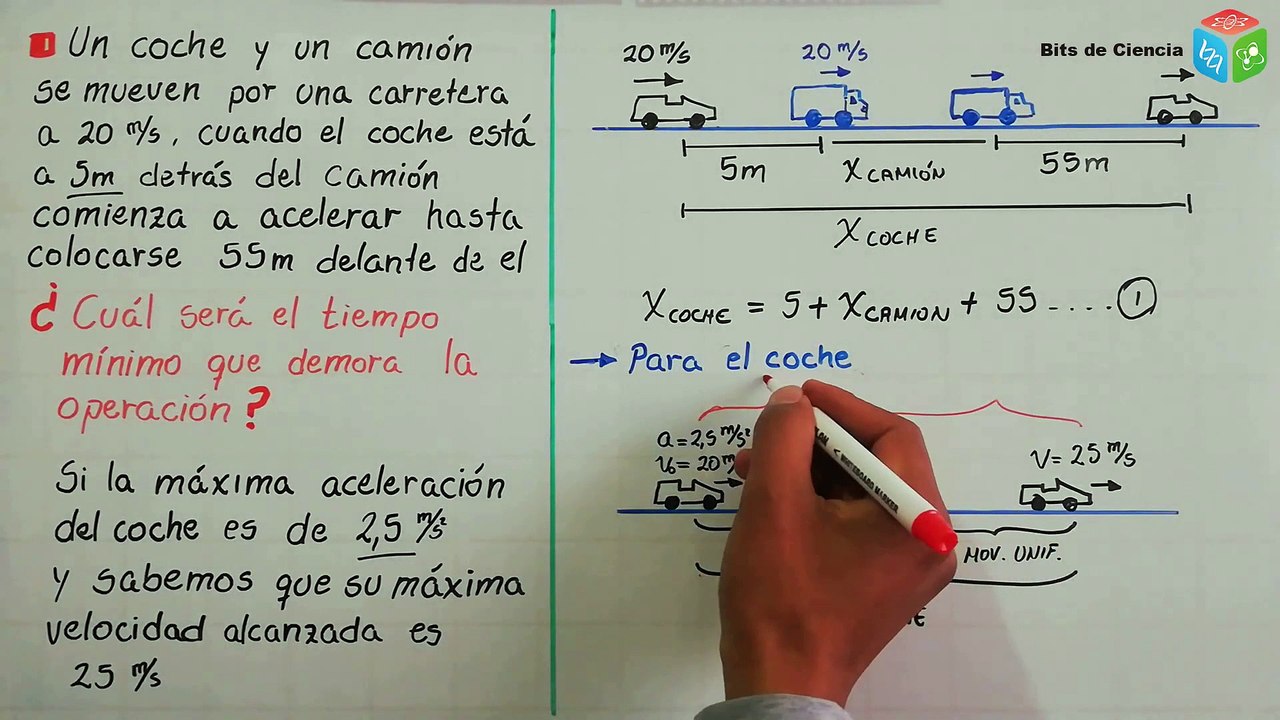 1 Un coche y un camión
se mueven por una carretera
a 20 m/s, cuando el coche está
a 5m detrás del camión
comienza a acelerar hasta
colocarse 55m delante de el
¿Cuál será el tiempo
mínimo que demora la
operación?
Si la máxima aceleración
del coche es de 2,5 m/s²
y sabemos que su máxima
velocidad alcanzada es
25 m/s
Bits de Ciencia
20 m/s
20 m/s
5m
X CAMIÓN
55m
X COCHE
X COCHE = 5 + X CAMION + 55 .... 1
→ Para el coche
a = 2,5 m/s²
V₀ = 20
V = 25 m/s
MOV. UNIF.